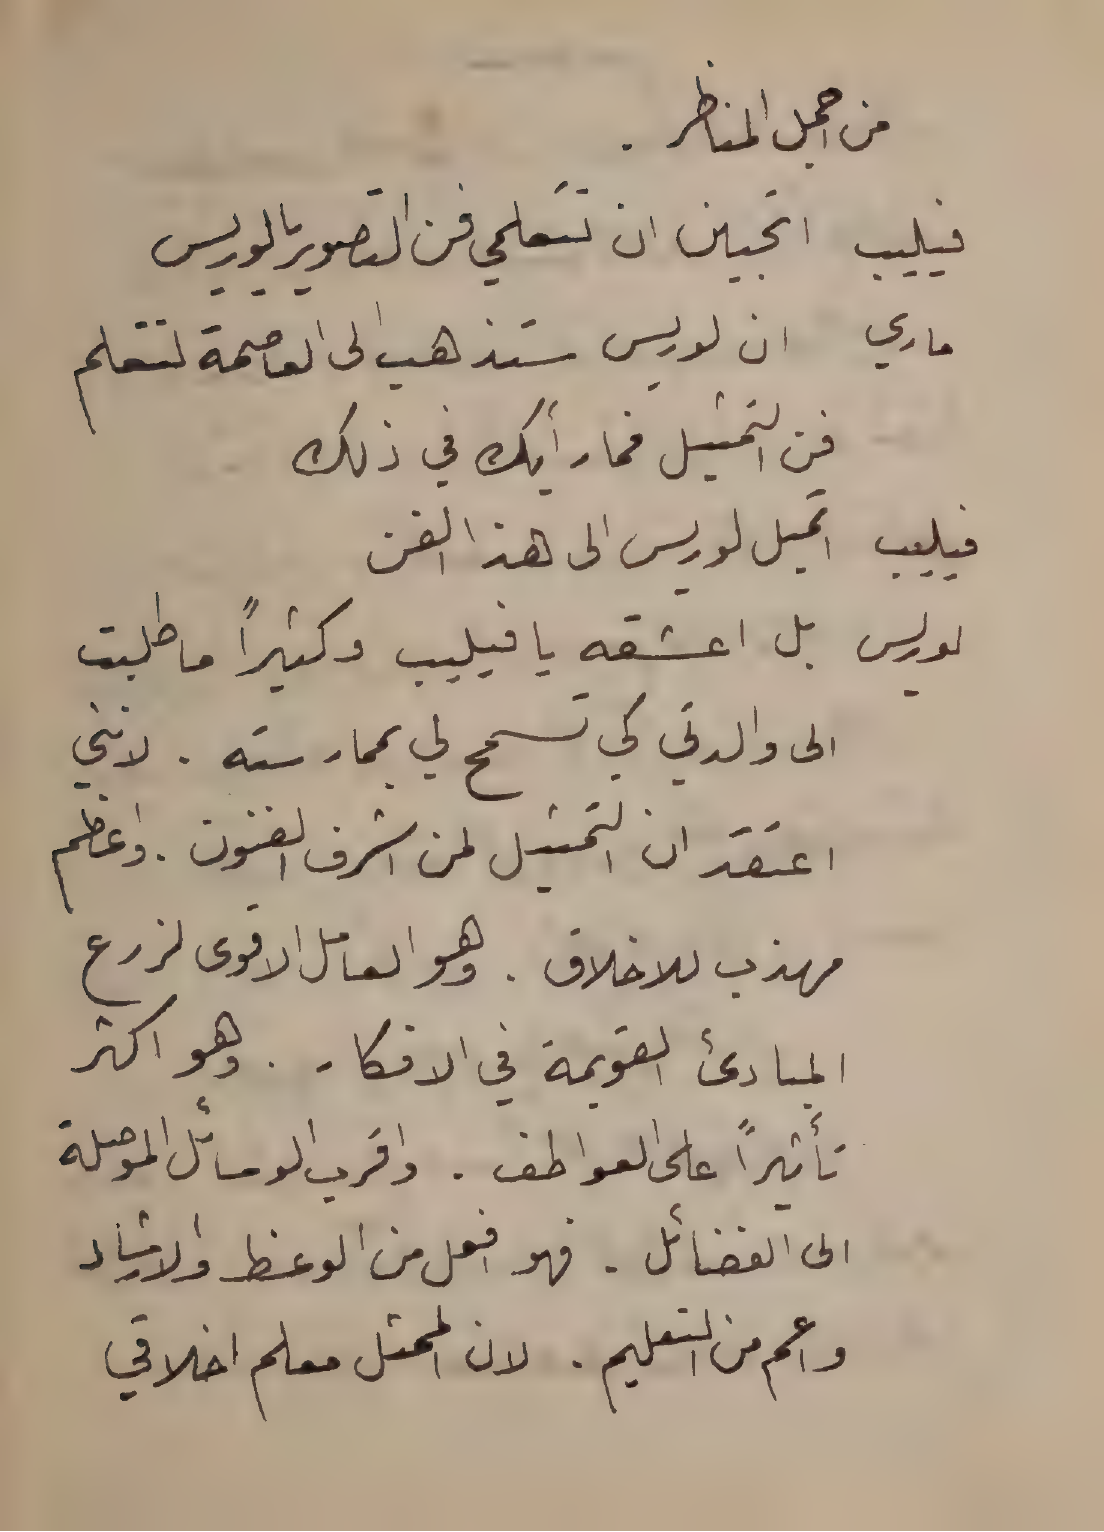 من اجمل المناظر .
فيليب اتحبين ان تتعلمي فن التصوير يا لوريس
ماري ان لوريس ستذهب الى العاصمة لتتعلم
فن التمثيل فما رأيك في ذلك
فيليب اتميل لوريس الى هذا الفن
لوريس بل اعشقه يا فيليب وكثيراً ما طلبت
الى والدتي كي تسمح لي بممارسته . لانني
اعتقد ان التمثيل لمن اشرف الفنون . واعظم
مهذب للاخلاق . وهو العامل الاقوى لزرع
المبادئ القويمة في الافكار . وهو اكثر
تأثيراً على العواطف . واقرب الوسائل الموصلة
الى الفضائل . فهو افعل من الوعظ والارشاد
واعم من التعليم . لان الممثل معلم اخلاقي